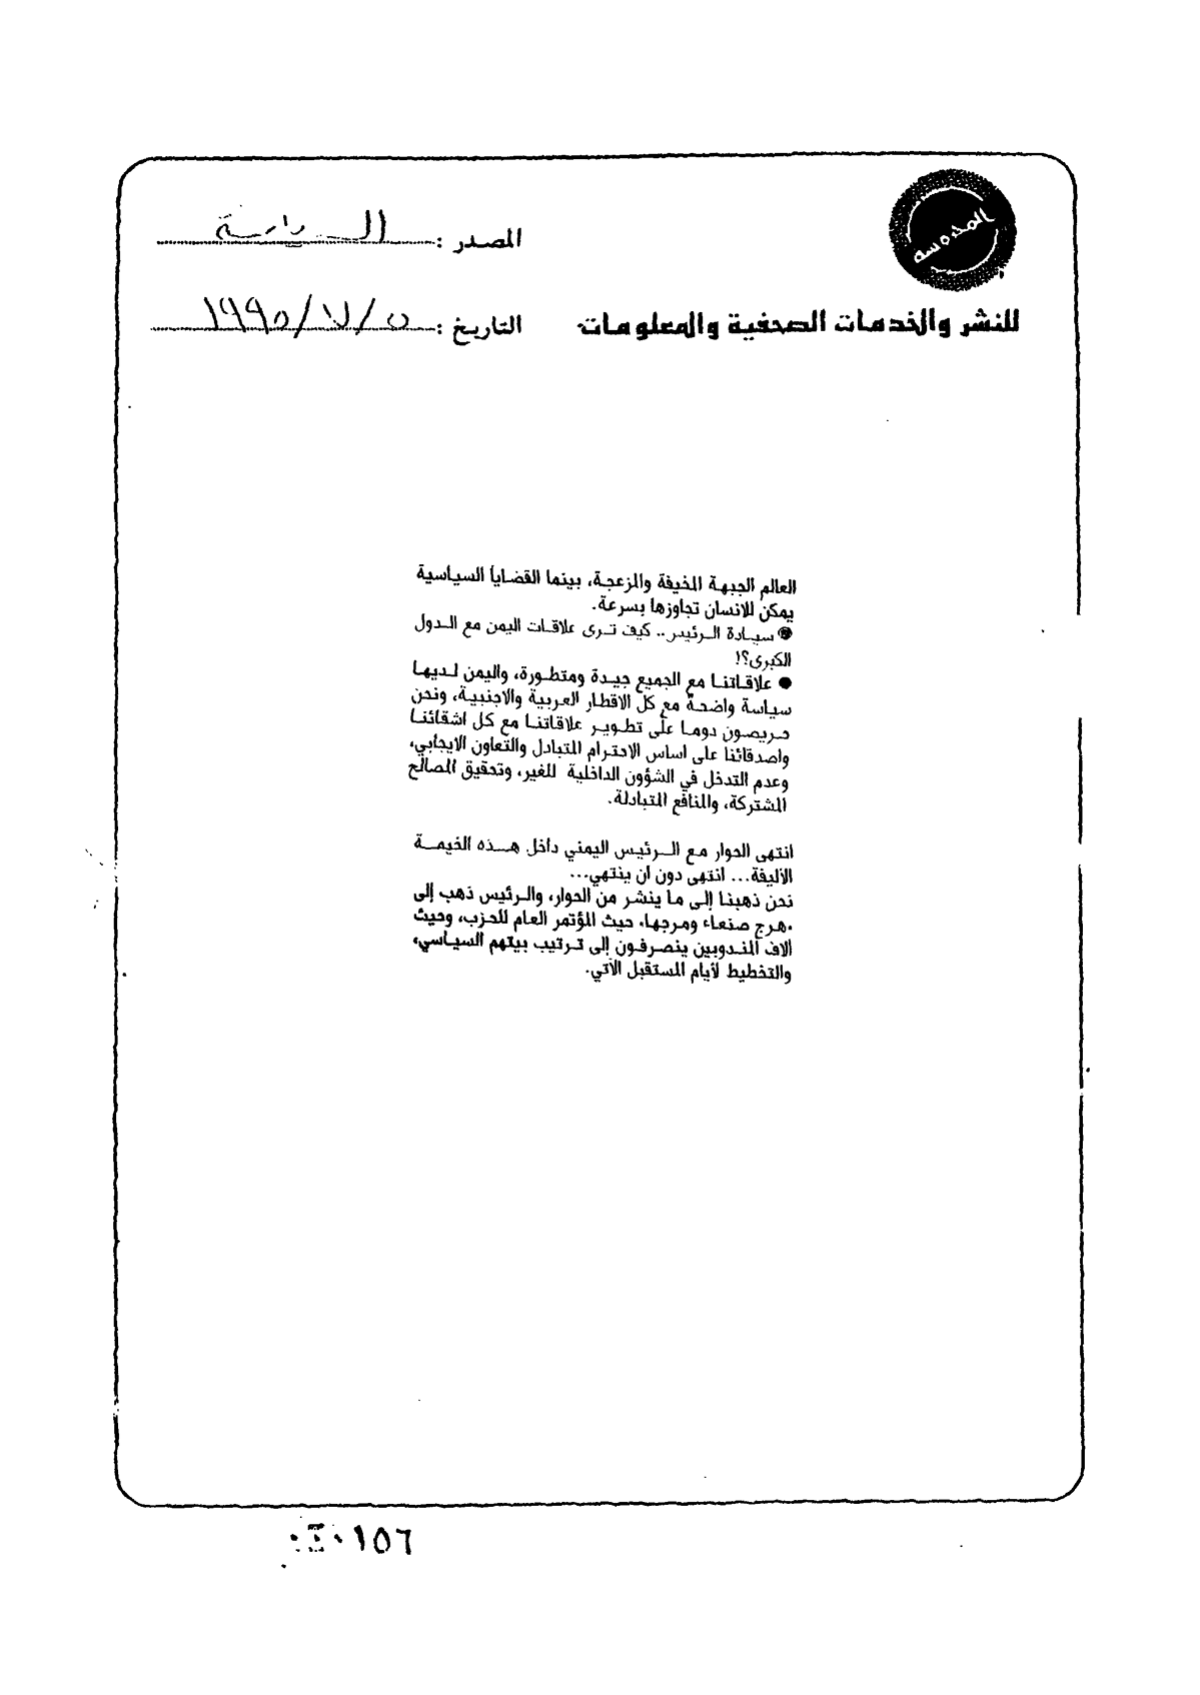 المحروسة
للنشر والخدمات الصحفية والمعلومات
المصدر : السياسة
التاريخ : ٥ / ٧ / ١٩٩٥
العالم الجبهة المخيفة والمزعجة، بينما القضايا السياسية
يمكن للانسان تجاوزها بسرعة.
● سيادة الرئيس.. كيف ترى علاقات اليمن مع الدول
الكبرى؟!
● علاقاتنا مع الجميع جيدة ومتطورة، واليمن لديها
سياسة واضحة مع كل الاقطار العربية والاجنبية، ونحن
حريصون دوما على تطوير علاقاتنا مع كل اشقائنا
واصدقائنا على اساس الاحترام المتبادل والتعاون الايجابي،
وعدم التدخل في الشؤون الداخلية للغير، وتحقيق المصالح
المشتركة، والمنافع المتبادلة.
انتهى الحوار مع الرئيس اليمني داخل هذه الخيمة
الأليفة... انتهى دون ان ينتهي...
نحن ذهبنا إلى ما ينشر من الحوار، والرئيس ذهب إلى
«هرج صنعاء ومرجها» حيث المؤتمر العام للحزب، وحيث
آلاف المندوبين ينصرفون إلى ترتيب بيتهم السياسي،
والتخطيط لأيام المستقبل الآتي.